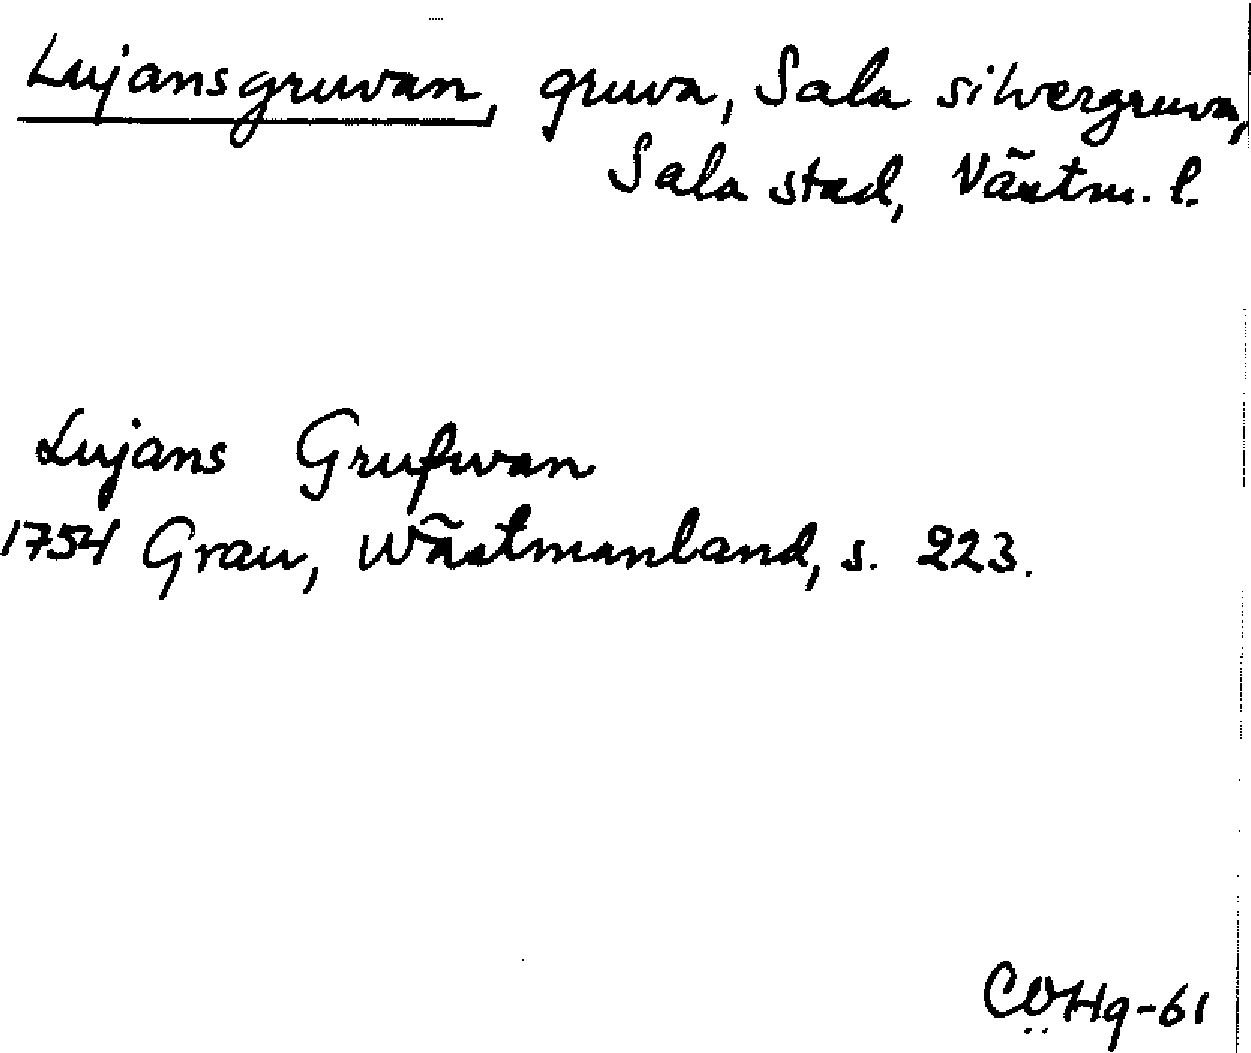 Lujansgruvan, gruva, Sala silvergruva,
Sala stad, Västm. l.
Lujans Grufwan
1754 Grau, Wästmanland, s. 223.
COHg-61